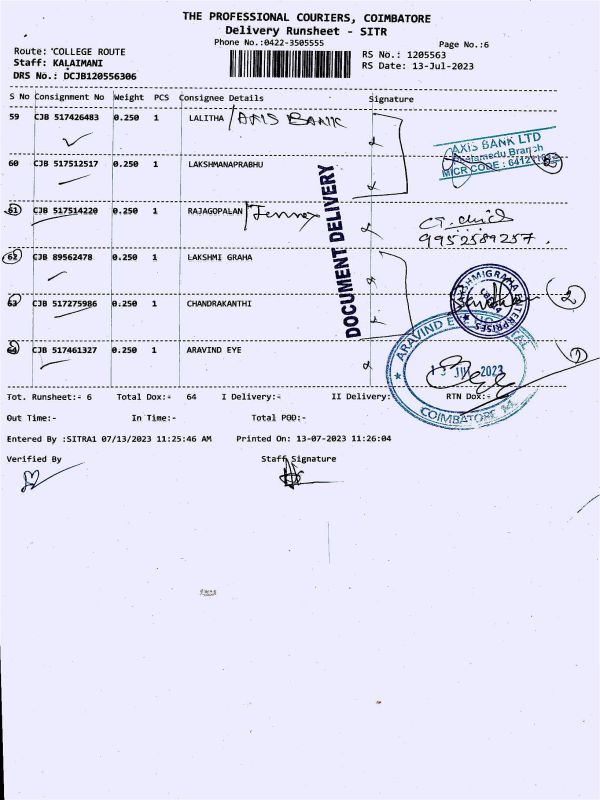 THE PROFESSIONAL COURIERS, COIMBATORE
Delivery Runsheet - SITR
Phone No.:0422-3505555
Page No.:6
Route: 'COLLEGE ROUTE
RS No.: 1205563
Staff: KALAIMANI
RS Date: 13-Jul-2023
DRS No.: DCJB120556306
S No Consignment No Weight PCS Consignee Details Signature
59 CJB 517426483 0.250 1 LALITHA / AXIS BANK
AXIS BANK LTD
Branch
MICR CODE :
60 CJB 517512517 0.250 1 LAKSHMANAPRABHU
DOCUMENT DELIVERY
61 CJB 517514220 0.250 1 RAJAGOPALAN
9952589257.
62 CJB 89562478 0.250 1 LAKSHMI GRAHA
63 CJB 517275986 0.250 1 CHANDRAKANTHI
2
64 CJB 517461327 0.250 1 ARAVIND EYE
ARAVIND EYE
13 JUL 2023
COIMBATORE
1
Tot. Runsheet:- 6 Total Dox:- 64 I Delivery:- II Delivery:- RTN Dox:-
Out Time:- In Time:- Total POD:-
Entered By :SITRA1 07/13/2023 11:25:46 AM Printed On: 13-07-2023 11:26:04
Verified By Staff Signature